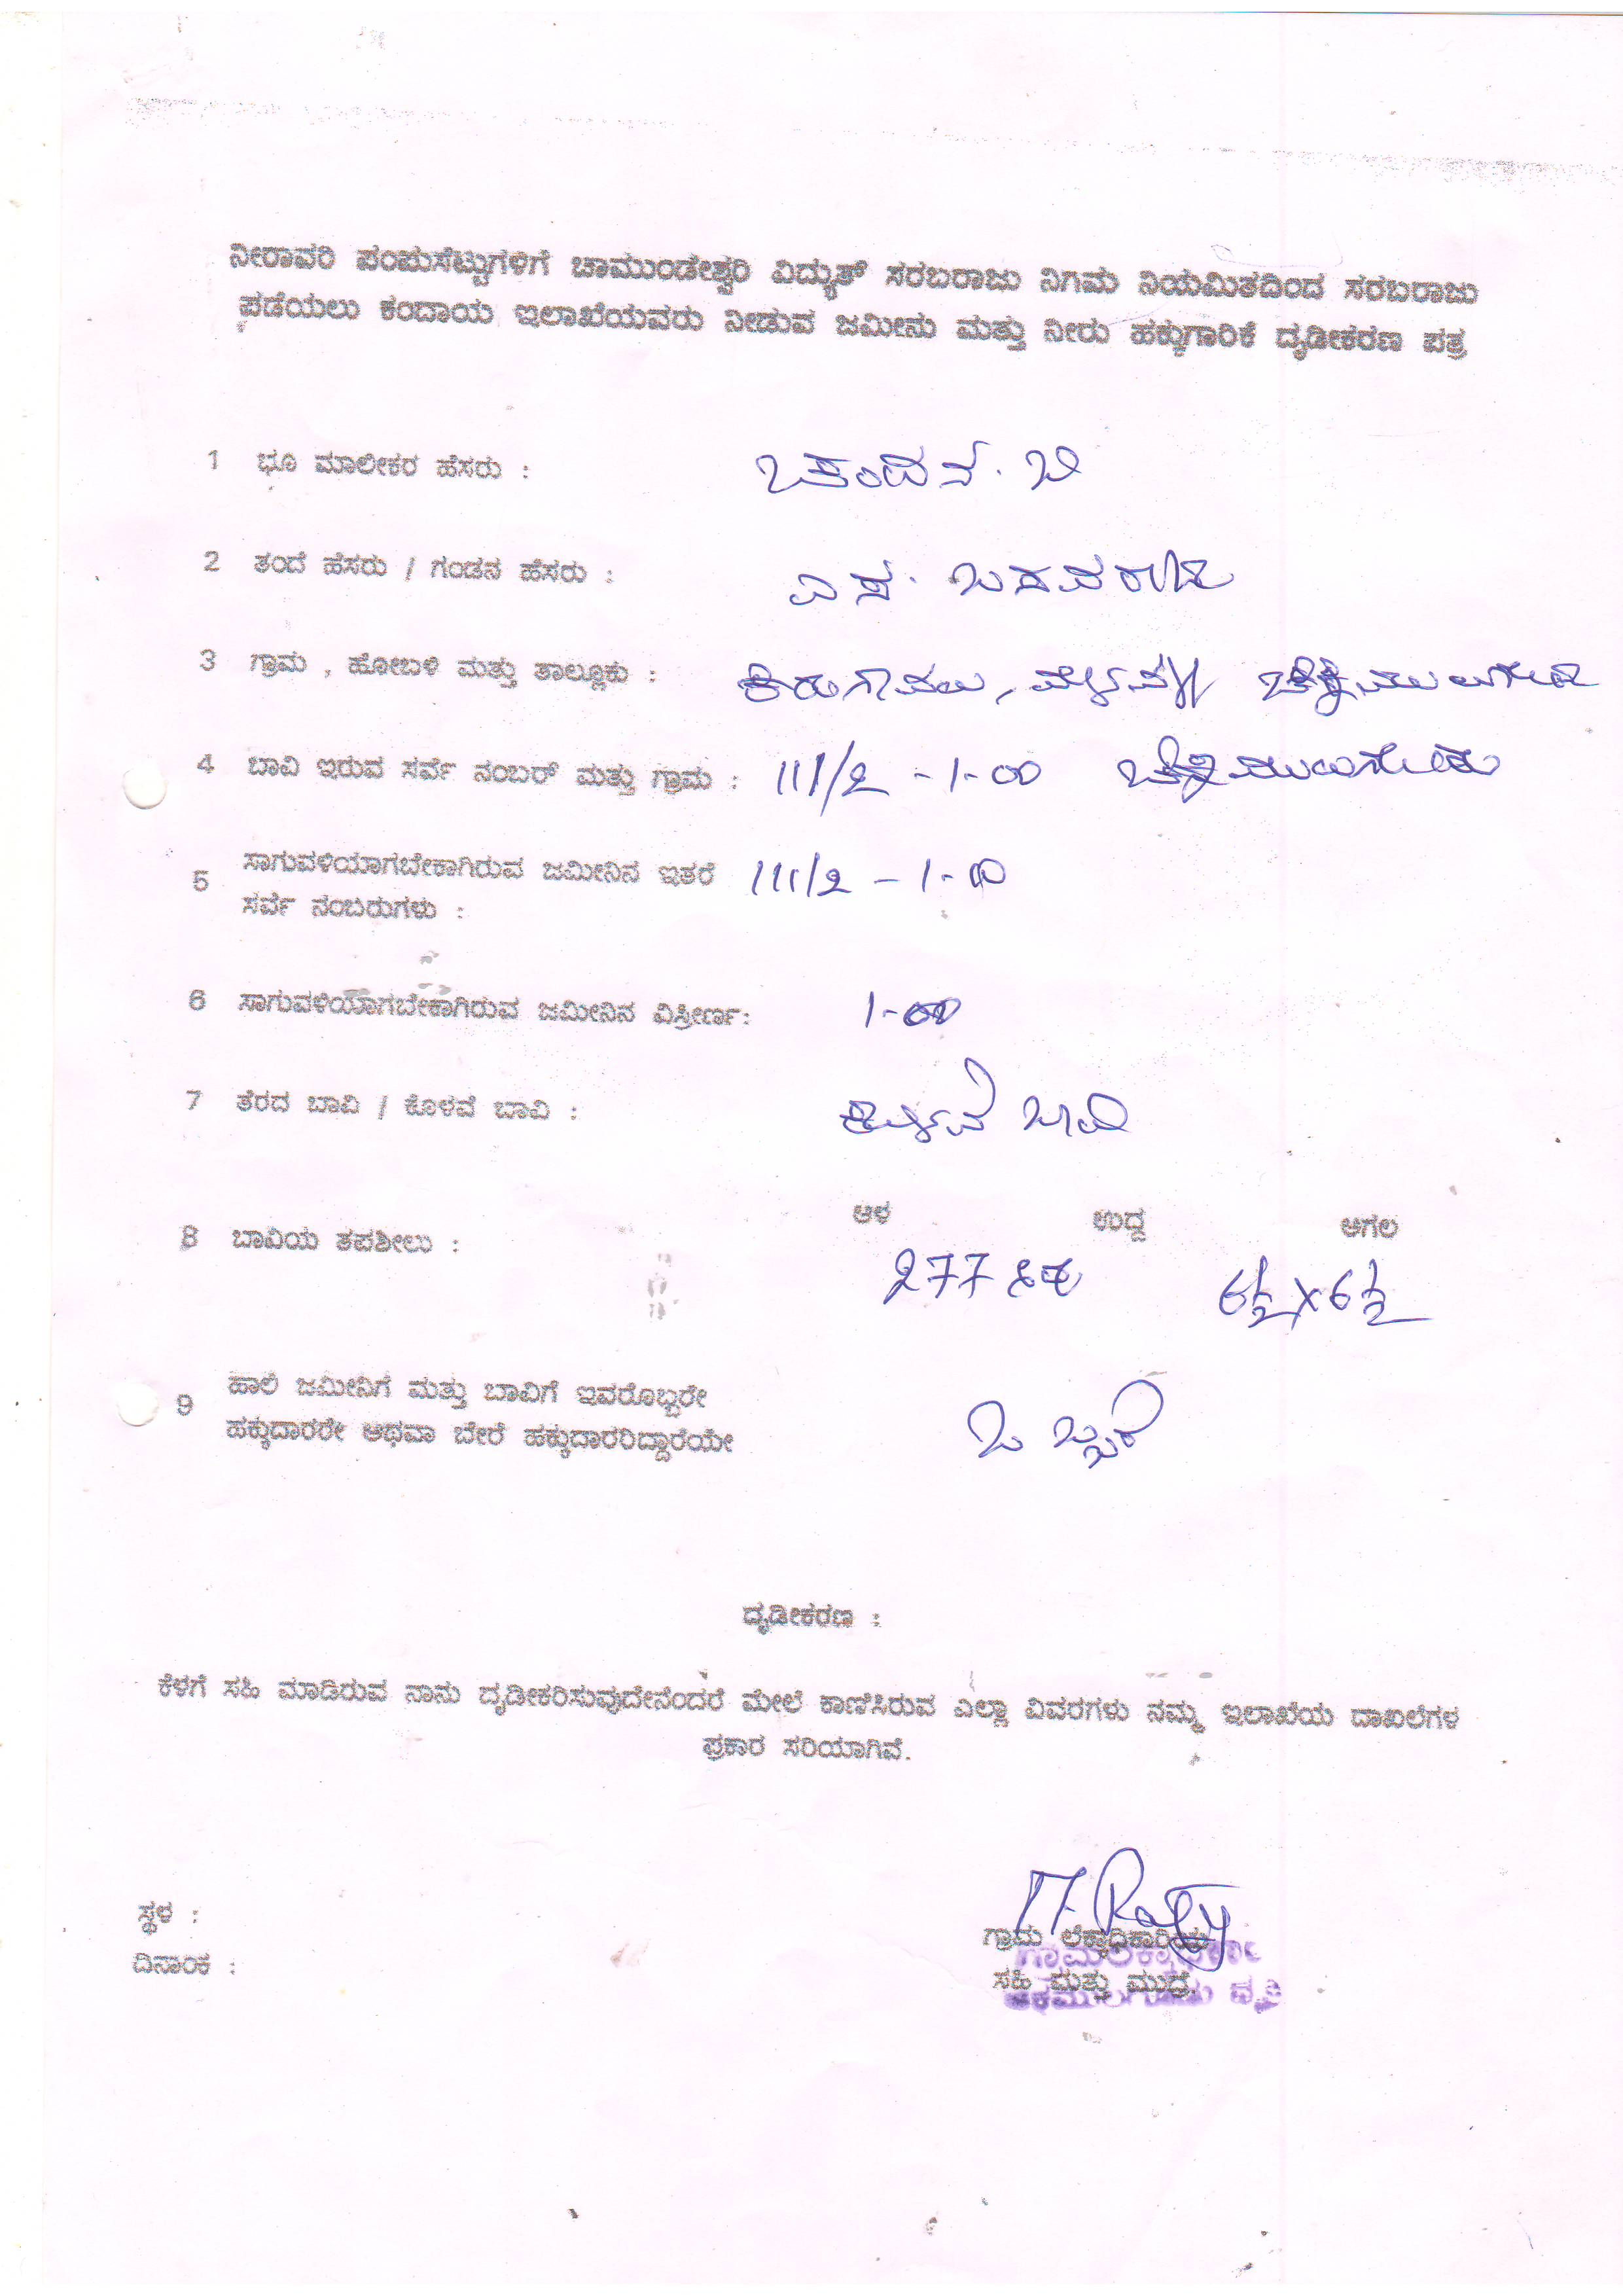 ನೀರಾವರಿ ಪಂಪುಸೆಟ್ಟುಗಳಿಗೆ ಚಾಮುಂಡೇಶ್ವರಿ ವಿದ್ಯುತ್ ಸರಬರಾಜು ನಿಗಮ ನಿಯಮಿತದಿಂದ ಸರಬರಾಜು
ಪಡೆಯಲು ಕಂದಾಯ ಇಲಾಖೆಯವರು ನೀಡುವ ಜಮೀನು ಮತ್ತು ನೀರು ಹಕ್ಕುಗಾರಿಕೆ ದೃಡೀಕರಣ ಪತ್ರ
1 ಭೂ ಮಾಲೀಕರ ಹೆಸರು : ಚಂದನ. ಬಿ
2 ತಂದೆ ಹೆಸರು / ಗಂಡನ ಹೆಸರು : ಎಸ. ಬಸವರಾಜು
3 ಗ್ರಾಮ , ಹೋಬಳಿ ಮತ್ತು ತಾಲ್ಲೂಕು : ಕಿರುಗಾವಲು, ಮಳವಳ್ಳಿ
4 ಬಾವಿ ಇರುವ ಸರ್ವೆ ನಂಬರ್ ಮತ್ತು ಗ್ರಾಮ : 111/2 - 1-00
5 ಸಾಗುವಳಿಯಾಗಬೇಕಾಗಿರುವ ಜಮೀನಿನ ಇತರೆ 111/2 - 1-00
ಸರ್ವೆ ನಂಬರುಗಳು :
6 ಸಾಗುವಳಿಯಾಗಬೇಕಾಗಿರುವ ಜಮೀನಿನ ವಿಸ್ತೀರ್ಣ: 1-00
7 ತೆರದ ಬಾವಿ / ಕೊಳವೆ ಬಾವಿ : ಕೊಳವೆ ಬಾವಿ
ಆಳ ಉದ್ದ ಅಗಲ
8 ಬಾವಿಯ ತಪಶೀಲು :
277 6½X6½
9 ಹಾಲಿ ಜಮೀನಿಗೆ ಮತ್ತು ಬಾವಿಗೆ ಇವರೊಬ್ಬರೇ
ಹಕ್ಕುದಾರರೇ ಅಥವಾ ಬೇರೆ ಹಕ್ಕುದಾರರಿದ್ದಾರೆಯೇ ಒಬ್ಬರೆ
ದೃಡೀಕರಣ :
ಕೆಳಗೆ ಸಹಿ ಮಾಡಿರುವ ನಾನು ದೃಡೀಕರಿಸುವುದೇನೆಂದರೆ ಮೇಲೆ ಕಾಣಿಸಿರುವ ಎಲ್ಲಾ ವಿವರಗಳು ನಮ್ಮ ಇಲಾಖೆಯ ದಾಖಲೆಗಳ
ಪ್ರಕಾರ ಸರಿಯಾಗಿವೆ.
ಸ್ಥಳ :
ಗ್ರಾಮ ಲೆಕ್ಕಾಧಿಕಾರಿಯ
ದಿನಾಂಕ :
ಸಹಿ ಮತ್ತು ಮುದ್ರೆ.